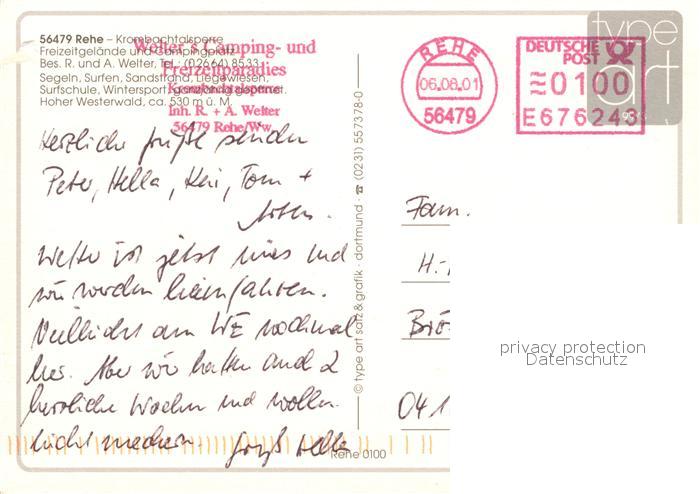 56479 Rehe – Krombachtalsperre
Freizeitgelände und Campingplatz
Bes. R. und A. Welter, Tel.: (02664) 8533
Segeln, Surfen, Sandstrand, Liegewiesen,
Surfschule, Wintersport,
Hoher Westerwald, ca. 530 m ü. M.
Welter's Camping- und
Freizeitparadies
Krombachtalsperre
Inh. R. + A. Welter
56479 Rehe/Ww.
REHE
06.08.01
56479
DEUTSCHE
POST
0100
E676243
type
art
Herzliche Grüße senden
Peter, Hella, Kai, Tom +
Wetter ist jetzt mies und
wir werden heimfahren.
Vielleicht am WE nochmal
her. Aber wir hatten auch 2
herrliche Wochen und wollen
nicht meckern. Gruß Hella
© type art satz & grafik · dortmund · ☎ (0231) 557378-0
Rehe 0100
Fam.
H.-
Brö
04 1
privacy protection
Datenschutz